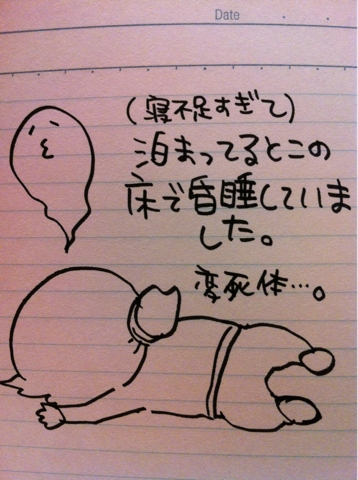 Date
(寝不足すぎて)
泊まってるとこの
床で昏睡していま
した。
変死体…。